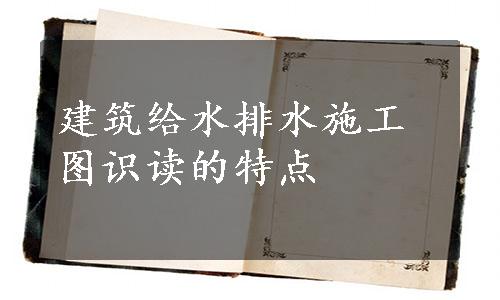 建筑给水排水施工
图识读的特点